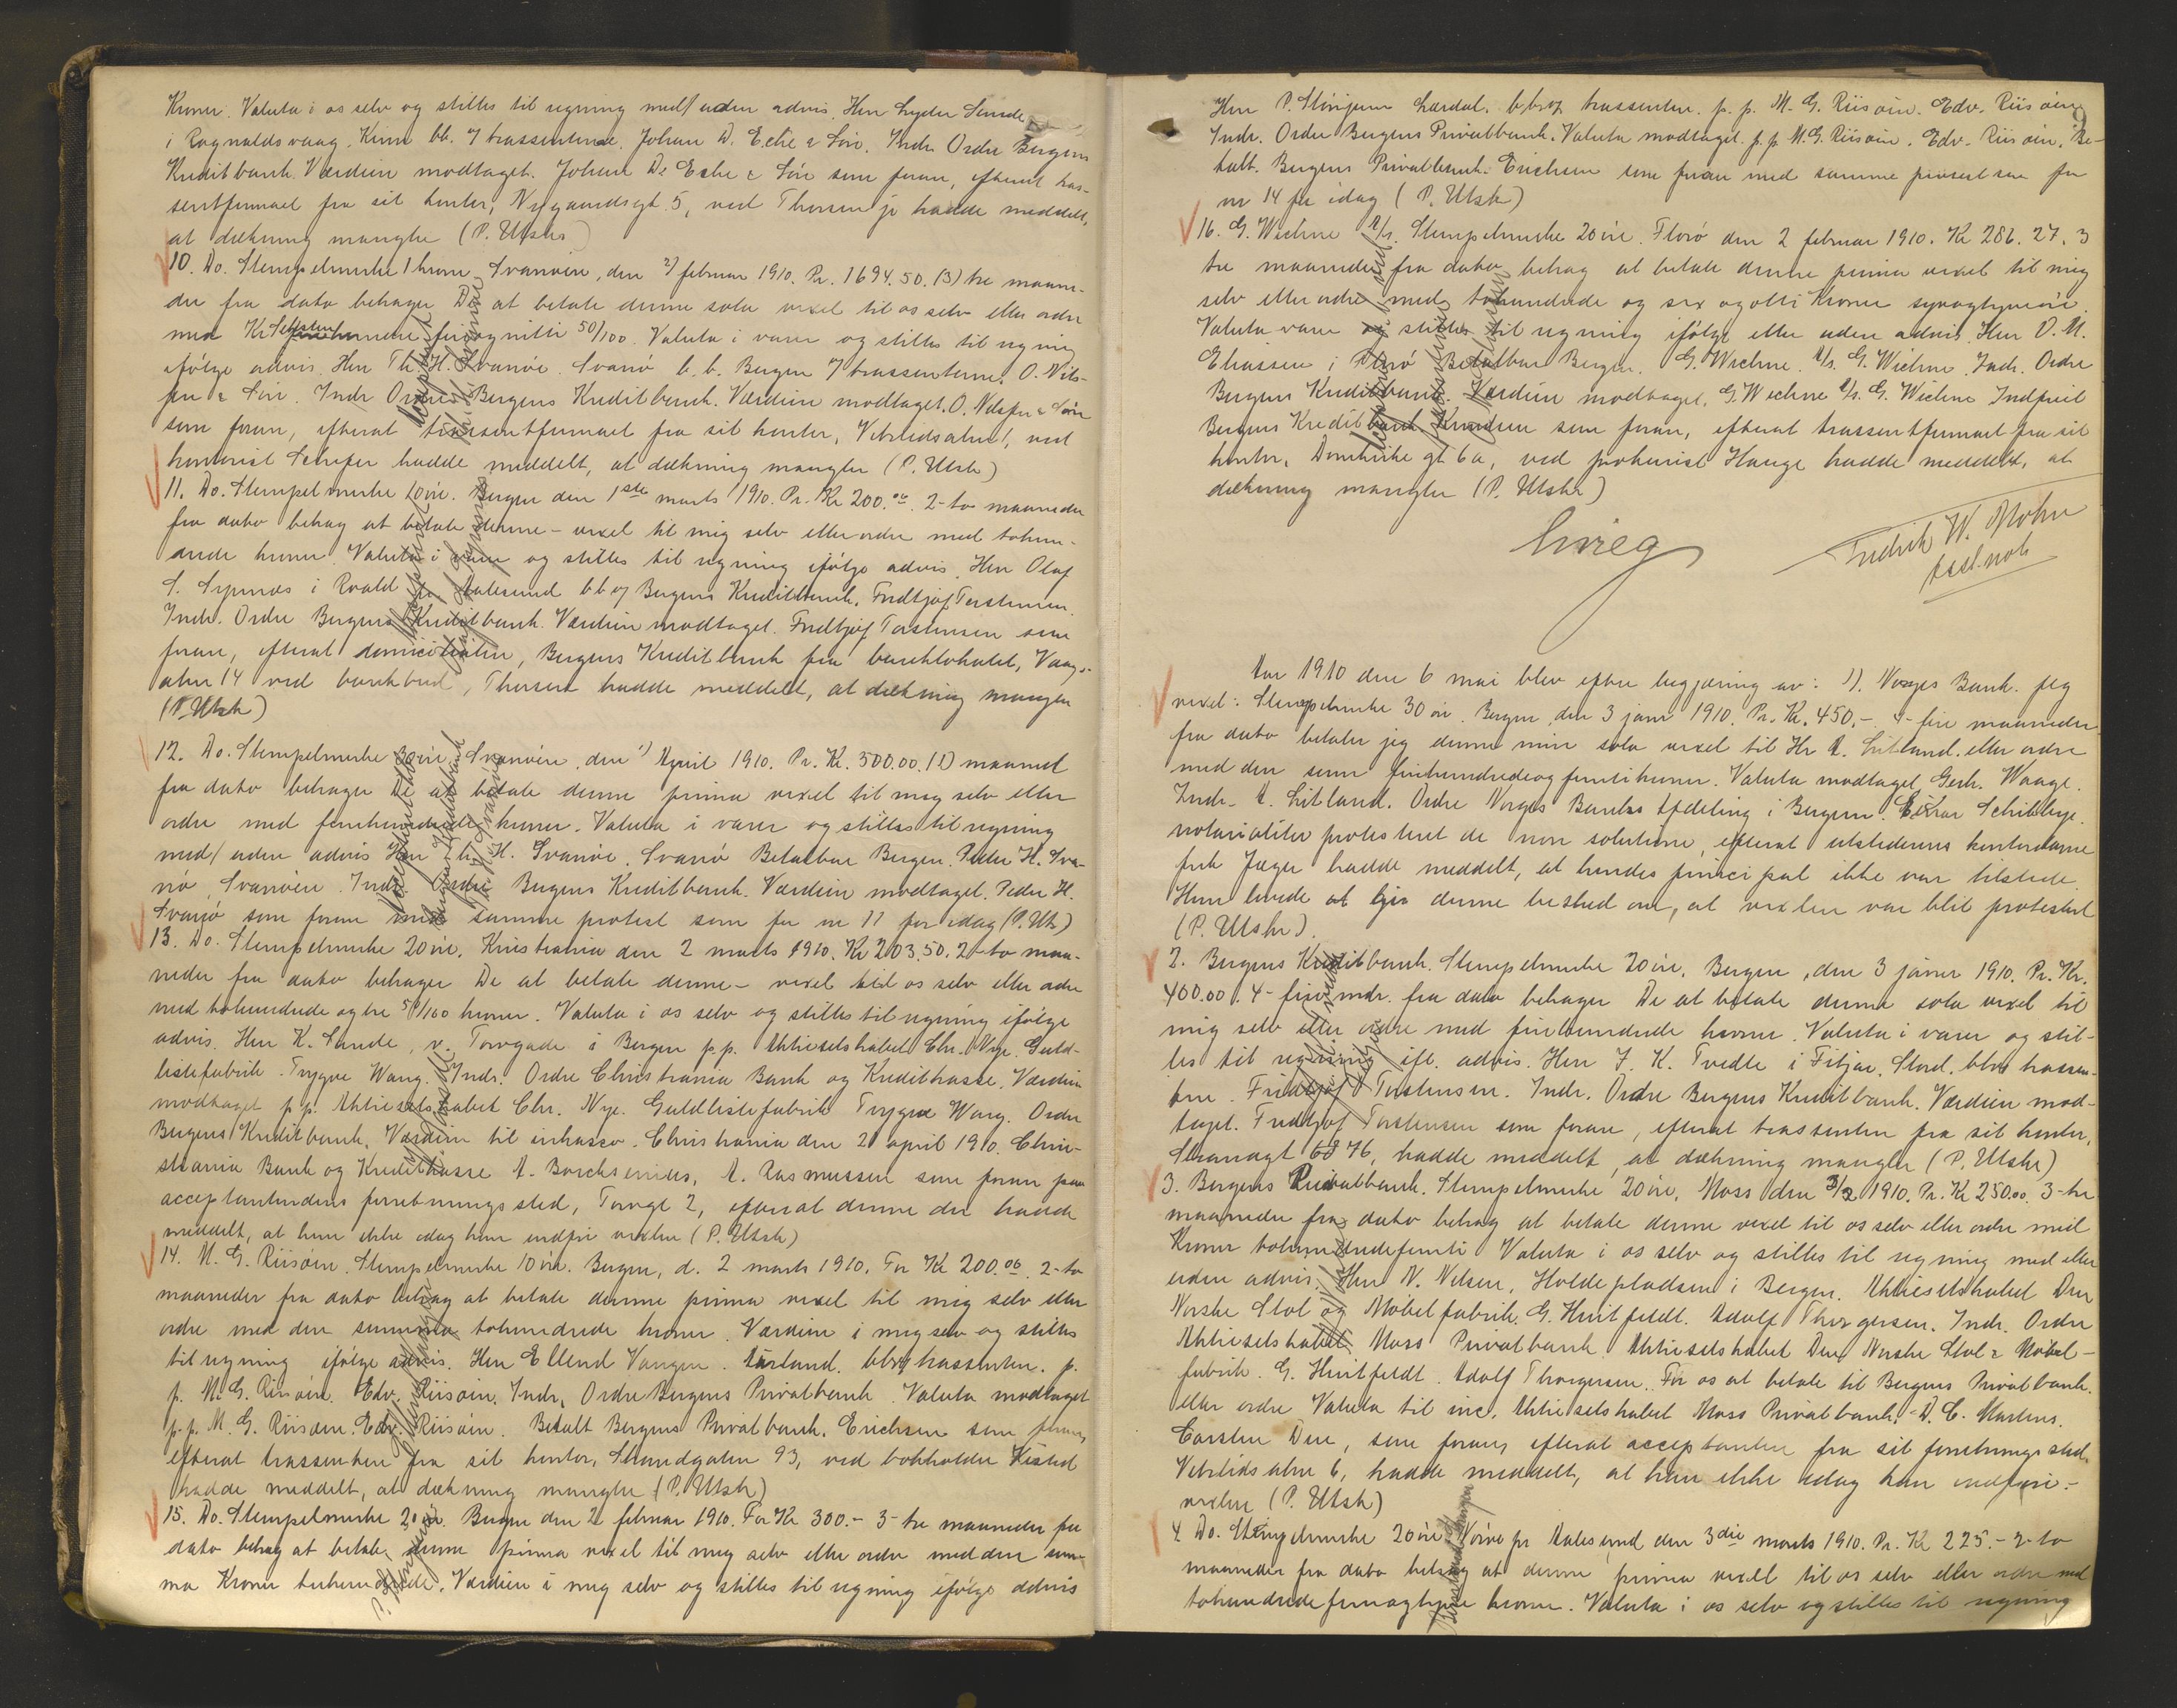 Kroner. Valuta i os selv og stilles til regning med/uden advis. Herr Lyder
i Rognaldsvaag. Kinn bb. 7 trassenterne. Johan D. Eche & Søn. Indr. Ordre Bergens
Kreditbank. Værdien modtaget. Johan D. Eche & Søn som foran, efterat tras-
sentfirmaet fra sit kontor, Nygaardsgt 5, ved Thorsen jr hadde meddelt,
at dækning mangler (P. Utskr)
10. Do. Stempelmerke 1 krone Svanøen, den 2/ februar 1910. Pr. 1694.50. (3) tre maane-
der fra dato behager De at betale denne sola vexel til os selv eller ordre
med Kr Sekstenhundrede firognitti 50/100. Valuta i varer og stilles til regning
ifølge advis. Herr Th. H. Svanøe. Svanø b.b. Bergen 7 trassenterne. O. Nils-
sen & Søn. Indr Ordre Bergens Kreditbank. Værdien modtaget. O. Nilssen & Søn
som foran, efterat trassentfirmaet fra sit kontor, Vetrlidsalm 1, ved
kontorist hadde meddelt, at dækning mangler (P. Utskr)
11. Do. Stempelmerke 20 øre. Bergen den 1ste marts 1910. Pr. Kr 200.00. 2-to maaneder
fra dato behag at betale denne - vexel til mig selv eller ordre med tohun-
drede kroner. Valuta i varer og stilles til regning ifølge advis. Herr Olaf
S. Sypnæs i Roald pr. Aalesund bb og Bergens Kreditbank. Fridtjof Torstensen.
Indr. Ordre Bergens Kreditbank. Værdien modtaget. Fridtjof Torstensen som
foran, efterat domiciliaten, Bergens Kreditbank fra banklokalet, Vaags-
alm 14 ved bankbud, Thorsen hadde meddelt, at dækning mangler
(P. Utskr)
12. Do. Stempelmerke 30 øre Svanøen, den 1/ April 1910. Pr. K. 500.00. (1) maaned
fra dato behager De at betale denne prima vexel til mig selv eller
ordre med femhundrede kroner. Valuta i varer og stilles til regning
med/uden advis Herr Th. H. Svanøe. Svanø Betalbar Bergen. Peder H. Sva-
nø, Svanøen. Indr. Ordre Bergens Kreditbank. Værdien modtaget. Peder H.
Svanø som foran med samme protest som for nr 11 for idag (P. Utskr)
13. Do. Stempelmerke 20 øre. Kristiania den 2 marts 1910. Kr 203.50. 2-to maa-
neder fra dato behager De at betale denne - vexel til os selv eller ordre
med tohundrede og tre 50/100 kroner. Valuta i os selv og stilles til regning ifølge
advis. Herr K. Sande, v. Torvgade i Bergen p.p. Aktieselskabet Chr. Nye. Guld-
listefabrik. Trygve Wang. Indr. Ordre Christiania Bank og Kreditkasse. Værdien
modtaget p.p. Aktieselskabet Chr. Nye. Guldlistefabrik Trygve Wang. Ordre
Bergens Kreditbank. Værdien til inkasso. Christiania den 21 april 1910. Chri-
stiania Bank og Kreditkasse A. Borchsenius, A. Rasmussen som foran paa
acceptantindens forretningssted, Torvgt 2, efterat denne der hadde
meddelt, at hun ikke idag kan indfri vexlen (P. Utskr)
14. M. G. Riisøen. Stempelmerke 10 øre. Bergen, d. 2 marts 1910. For Kr 200.00. 2-to
maaneder fra dato behag at betale denne prima vexel til mig selv eller
ordre med den summa tohundrede kroner. Værdien i mig selv og stilles
til regning ifølge advis. Herr Ellend Vangen. Aurland. bbog trassenten. p.
p. M. G. Riisøen. Edv. Riisøen. Indr. Ordre Bergens Privatbank. Valuta modtaget
p.p. M. G. Riisøen. Edv. Riisøen. Betalt Bergens Privatbank. Erichsen som foran,
efterat trassenten fra sit kontor, Strandgaten 93, ved bokholder
hadde meddelt, at dækning mangler (P. Utskr)
15. Do. Stempelmerke 20 øre. Bergen den 2 februar 1910. For Kr 300.- 3-tre maaneder fra
dato behag at betale denne prima vexel til mig selv eller ordre med den sum-
ma Kroner trehundrede. Værdien i mig selv og stilles til regning ifølge advis
9
Herr P. Lærdal. bbog trassenten. p.p. M. G. Riisøen. Edv. Riisøen.
Indr. Ordre Bergens Privatbank. Valuta modtaget. p.p. M. G. Riisøen. Edv. Riisøen. Be-
talt. Bergens Privatbank. Erichsen som foran med samme protest som for
nr 14 for idag (P. Utskr)
16. G. Wichne A/s. Stempelmerke 20 øre. Florø den 2 februar 1910. Kr 286.27. 3
tre maaneder fra dato behag at betale denne prima vexel til mig
selv eller ordre med tohundrede og sex og otti Kroner syvogtyve øre.
Valuta varer og stilles til regning ifølge eller uden advis. Herr O. M.
Eliassen i Florø Betalbar Bergen. G. Wichne A/s. G. Wichne. Indr. Ordre
Bergens Kreditbank. Værdien modtaget. G. Wichne A/s. G. Wichne Indfriet
Bergens Kreditbank Knudsen som foran, efterat trassentfirmaet fra sit
kontor, Domkirkegt 6a, ved prokurist Hauge hadde meddelt, at
dækning mangler (P. Utskr)
Fredrik W. Mohn
const. not.
Aar 1910 den 6 mai blev efter begjæring av: 1). Norges Bank. flg
vexel: Stempelmerke 30 øre. Bergen, den 3 janr 1910. Pr. Kr. 450.- 4-fire maaneder
fra dato betaler jeg denne min sola vexel til Hr A. Litland. eller ordre
med den sum firehundredeogfemtikroner. Valuta modtaget. Gerh. Waage.
Indr. A. Litland. Ordre Norges Banks Afdeling i Bergen. Einar Schibbye.
notarialiter protesteret de non solutione, efterat utstederens kontordame
frk Jæger hadde meddelt, at hendes principal ikke var tilstede.
Hun lovede at gi denne besked om, at vexlen var blit protestert
(P. Utskr).
2. Bergens Kreditbank. Stempelmerke 20 øre. Bergen, den 3 janr 1910. Pr. Kr.
400.00. 4-fire mdr. fra dato behager De at betale denne sola vexel til
mig selv eller ordre med firehundrede kroner. Valuta i varer og stil-
les til regning ifl. advis. Herr J. K. Tvedte i Fitjar, Stord. bbog trassen-
ten. Fridtjof Torstensen. Indr. Ordre Bergens Kreditbank. Værdien mod-
taget. Fridtjof Torstensen som foran, efterat trassenten fra sit kontor,
Strandgt 68 76, hadde meddelt, at dækning mangler (P. Utskr)
3. Bergens Privatbank. Stempelmerke 20 øre. Moss den 3/2 1910. Pr. Kr 250.00. 3-tre
maaneder fra dato behag at betale denne vexel til os selv eller ordre med
Kroner tohundredefemti Valuta i os selv og stilles til regning med eller
uden advis. Herr N. Nilsen, Holdepladsen i Bergen. Aktieselskabet Den
Norske Stol og Møbelfabrik. G. Huitfeldt. Adolf Thorgersen. Indr. Ordre
Aktieselskabet Moss Privatbank. Aktieselskabet Den Norske Stol & Møbel-
fabrik. G. Huitfeldt. Adolf Thorgersen. For os at betale til Bergens Privatbank.
eller ordre Valuta til inc. Aktieselskabet Moss Privatbank. D. C. Martens.
Carsten Due, som foran, efterat acceptanten fra sit forretningssted.
Vetrlidsalm 6, hadde meddelt, at han ikke idag kan indfri-
vexlen (P. Utskr)
4. Do. Stempelmerke 20 øre. pr Aalesund den 3die marts 1910. Pr. Kr 225.- 2-to
maaneder fra dato behag at denne prima vexel til os selv eller ordre med
tohundredefemogtyve kroner. Valuta i os selv og stilles til regning